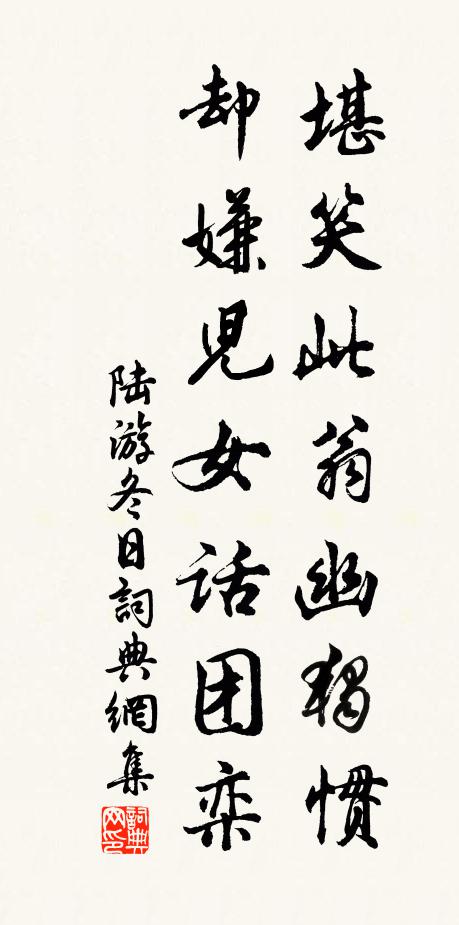 堪笑此翁幽独惯
却嫌児女话团栾
陆游冬日詞典網集
詞典网印